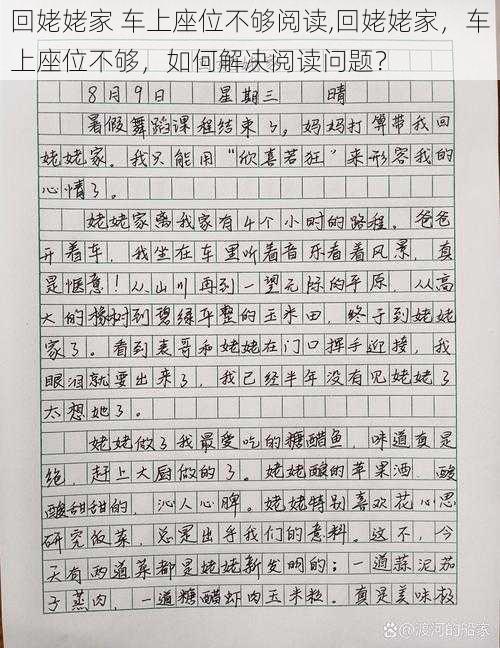 回姥姥家 车上座位不够阅读,回姥姥家，车
上座位不够，如何解决阅读问题？
8月9日 星期三 晴
暑假舞蹈课程结束了，妈妈打算带我回
姥姥家。我只能用“欣喜若狂”来形容我的
心情了。
姥姥家离我家有4个小时的路程。爸爸
开着车，我坐在车里听着音乐看着风景，真
是惬意！从山川再到一望无际的平原，从高
大的杨树到碧绿平整的玉米田，终于到姥姥
家了。看到表哥和姥姥在门口挥手迎接，我
眼泪就要出来了，我已经半年没有见姥姥了
太想她了。
姥姥做了我最爱吃的糖醋鱼，味道真是
绝，赶上大厨做的了。姥姥酿的苹果酒，酸
酸甜甜的，沁人心脾。姥姥特别喜欢花心思
研究饭菜，总是出乎我们的意料。这不，今
天有两道菜都是姥姥新发明的；一道蒜泥茄
子蒸肉，一道糖醋虾肉玉米粒。真是美味极
渡河的船家